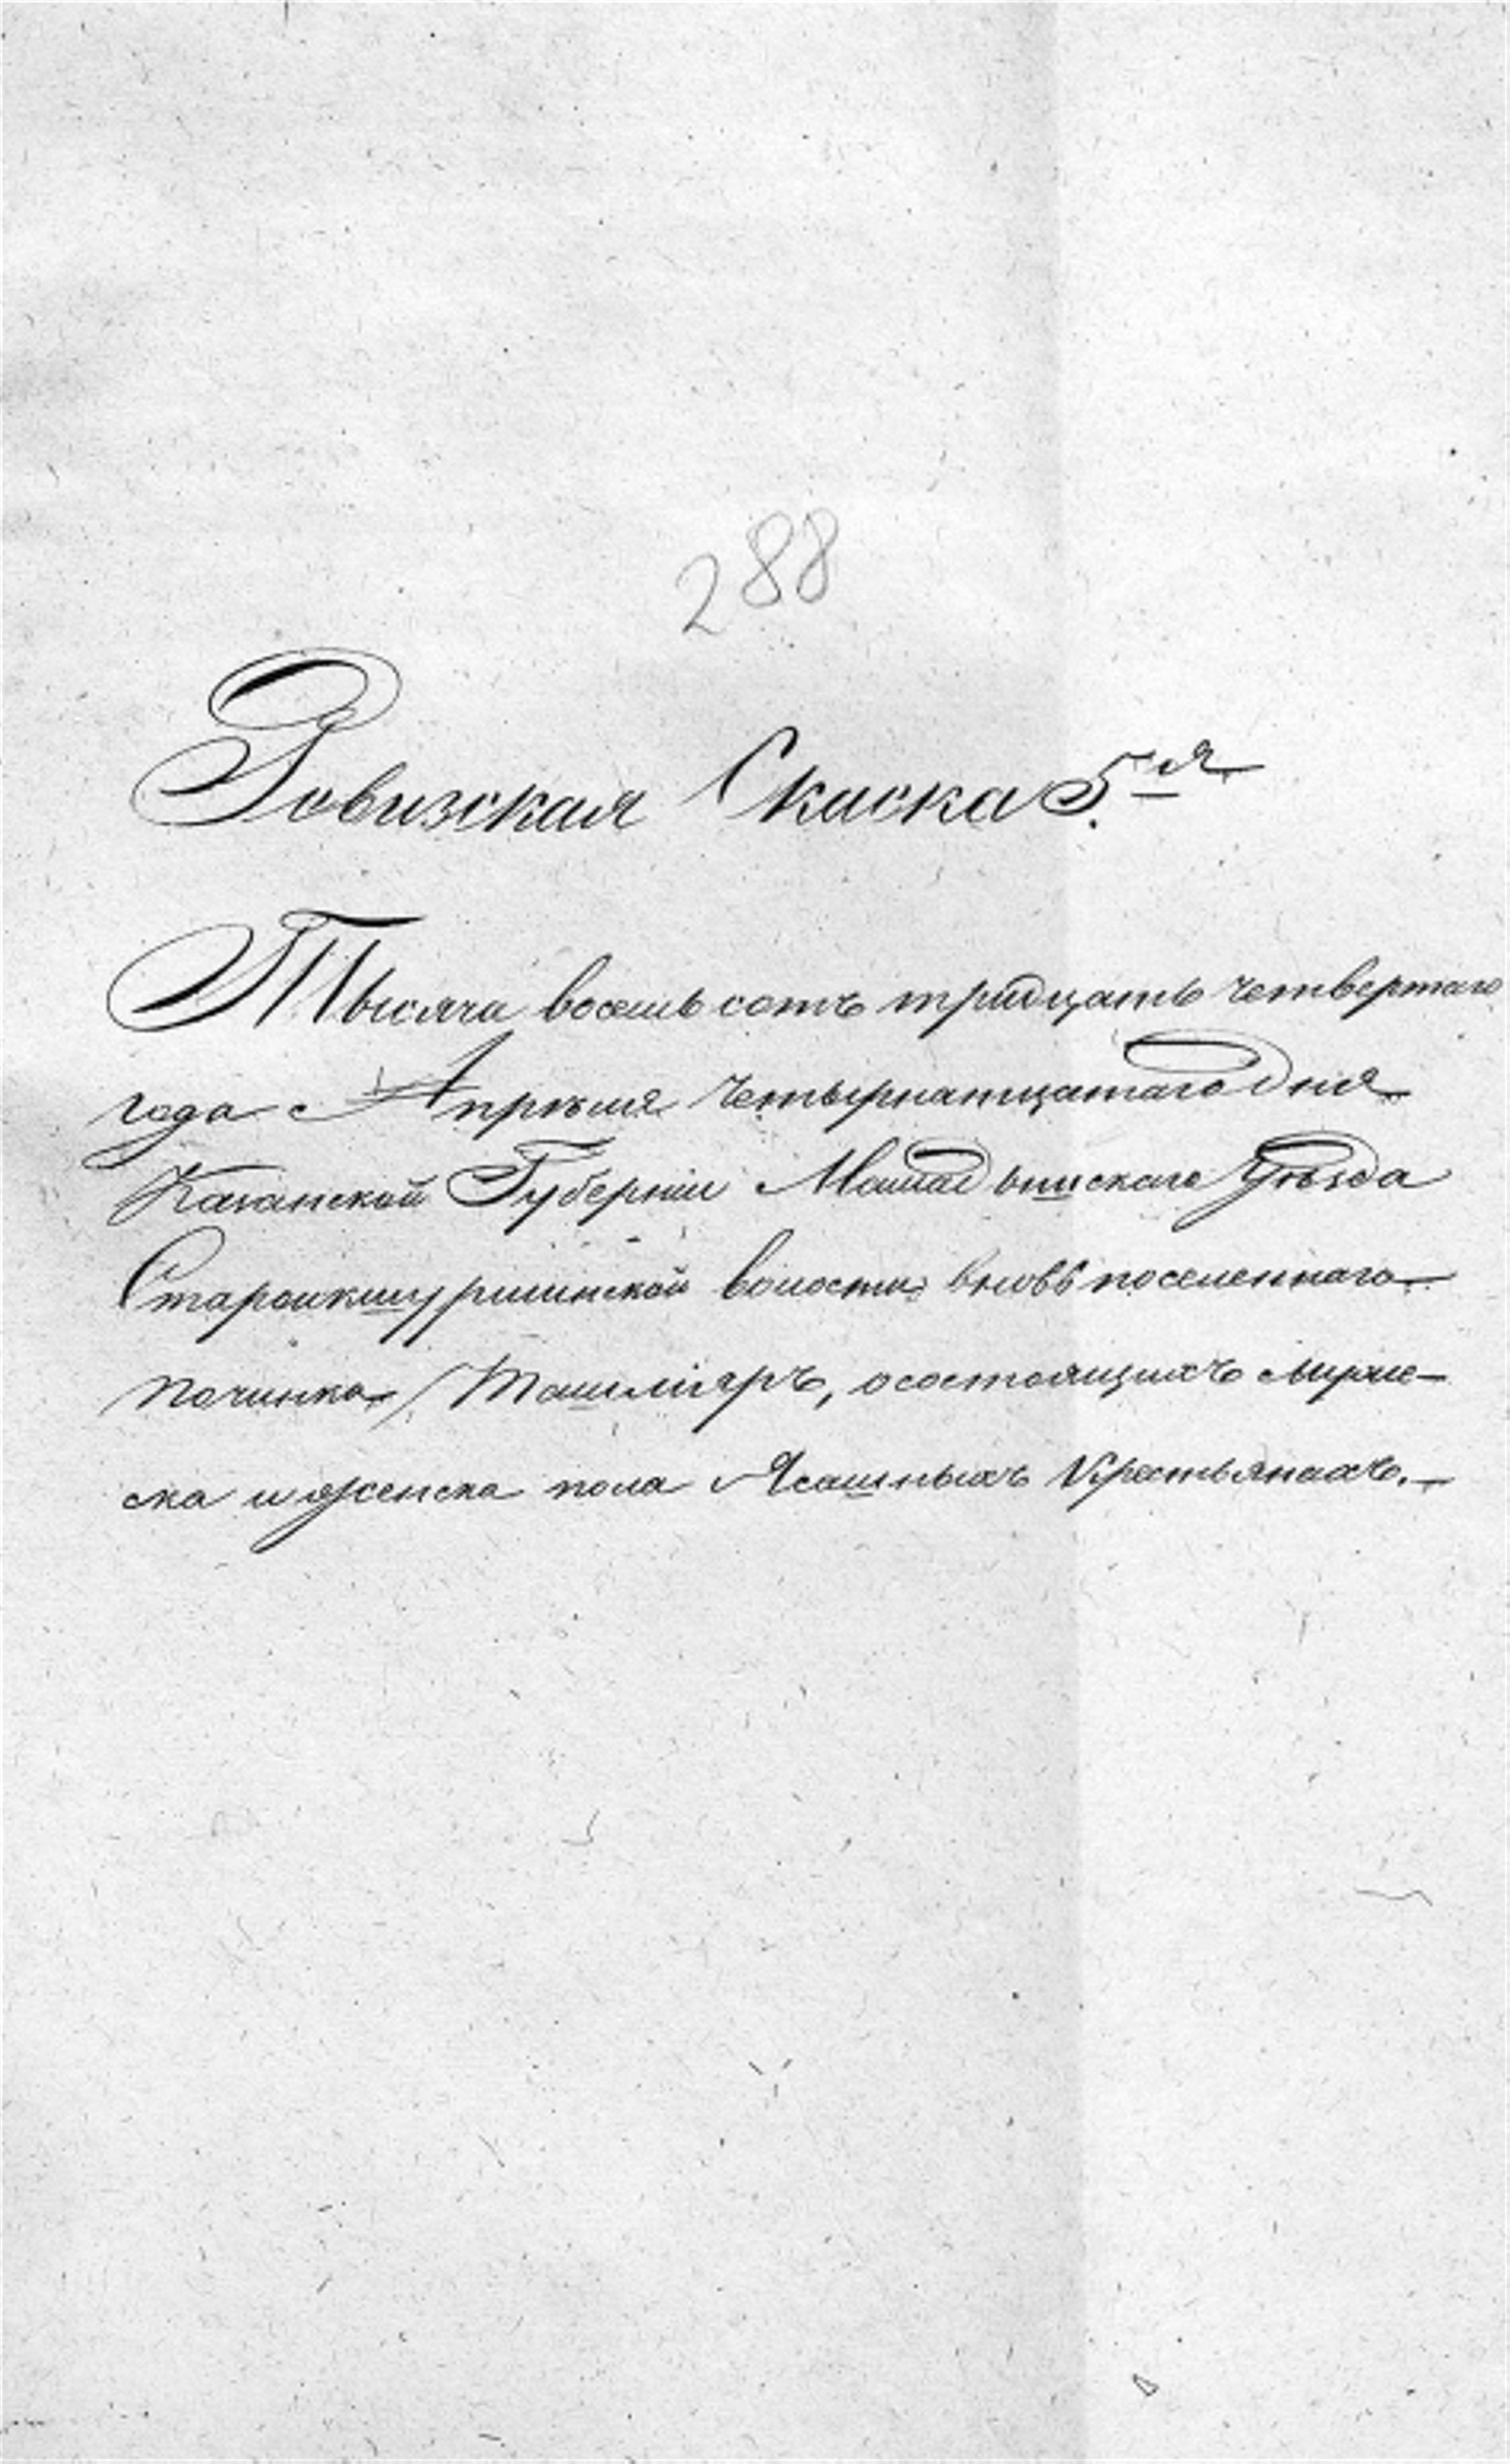 288
Ревизская Скаска 5.я
Тысяча восемь сотъ тридцать четвертаго
года Апрѣля Четырнатцатаго дня
Казанской Губерніи Мамадышскаго Уѣзда
волости вновь поселеннаго
Починка Ташлияръ, осостоящихъ Муже-
ска и женска пола Ясашныхъ Крестьянахъ.